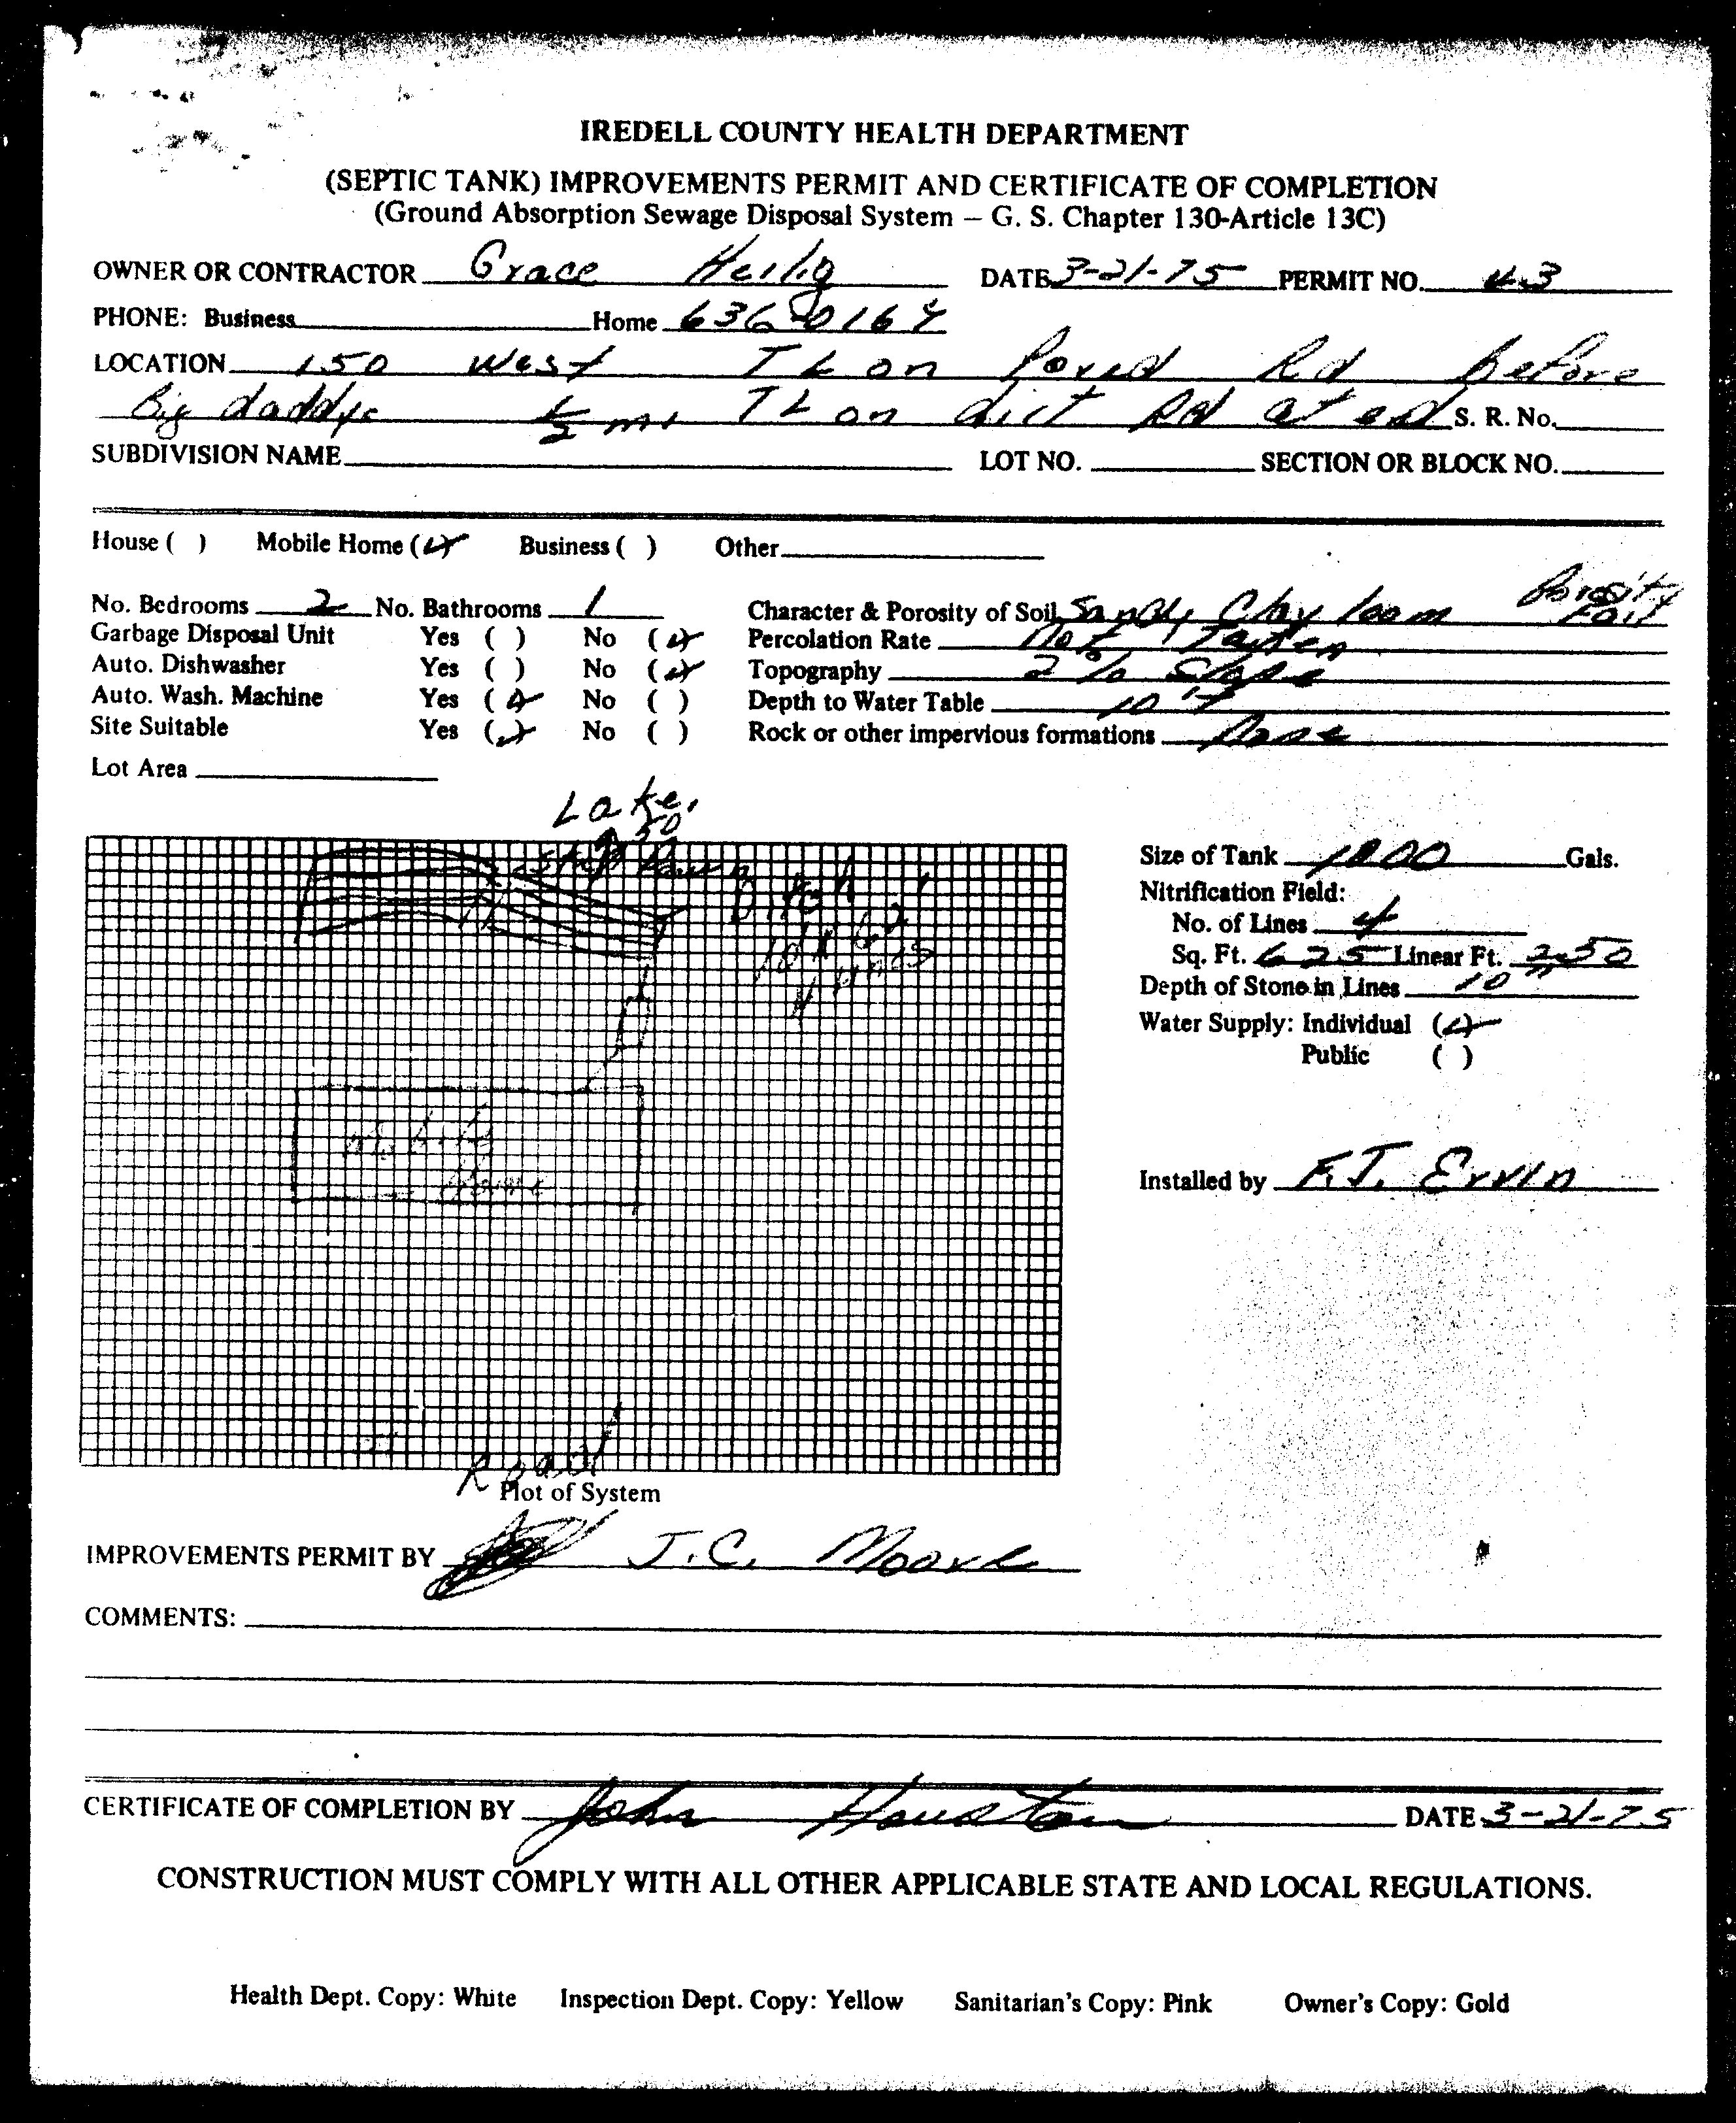 IREDELL COUNTY HEALTH DEPARTMENT
(SEPTIC TANK) IMPROVEMENTS PERMIT AND CERTIFICATE OF COMPLETION
(Ground Absorption Sewage Disposal System – G. S. Chapter 130-Article 13C)
OWNER OR CONTRACTOR Grace Heilig DATE 3-21-75 PERMIT NO. 43
PHONE: Business Home 636-0164
LOCATION 150 West TL on Paved Rd Before
Big daddys 1/2 mi TL on dirt Rd at end S. R. No.
SUBDIVISION NAME LOT NO. SECTION OR BLOCK NO.
House ( ) Mobile Home (✓) Business ( ) Other
No. Bedrooms 2 No. Bathrooms 1 Character & Porosity of Soil Sandy Clay loam Porosity Fair
Garbage Disposal Unit Yes ( ) No (✓) Percolation Rate Not Taken
Auto. Dishwasher Yes ( ) No (✓) Topography 2% Slope
Auto. Wash. Machine Yes (✓) No ( ) Depth to Water Table 10 ft
Site Suitable Yes (✓) No ( ) Rock or other impervious formations None
Lot Area
Lake
50
Step down
Ditch
4 lines
Mobile
Home
Road
Plot of System
Size of Tank 1000 Gals.
Nitrification Field:
No. of Lines 4
Sq. Ft. 625 Linear Ft. 250
Depth of Stone in Lines 10"
Water Supply: Individual (✓)
Public ( )
Installed by F.J. Ervin
IMPROVEMENTS PERMIT BY J.C. Moore
COMMENTS:
CERTIFICATE OF COMPLETION BY John Houston DATE 3-21-75
CONSTRUCTION MUST COMPLY WITH ALL OTHER APPLICABLE STATE AND LOCAL REGULATIONS.
Health Dept. Copy: White Inspection Dept. Copy: Yellow Sanitarian's Copy: Pink Owner's Copy: Gold